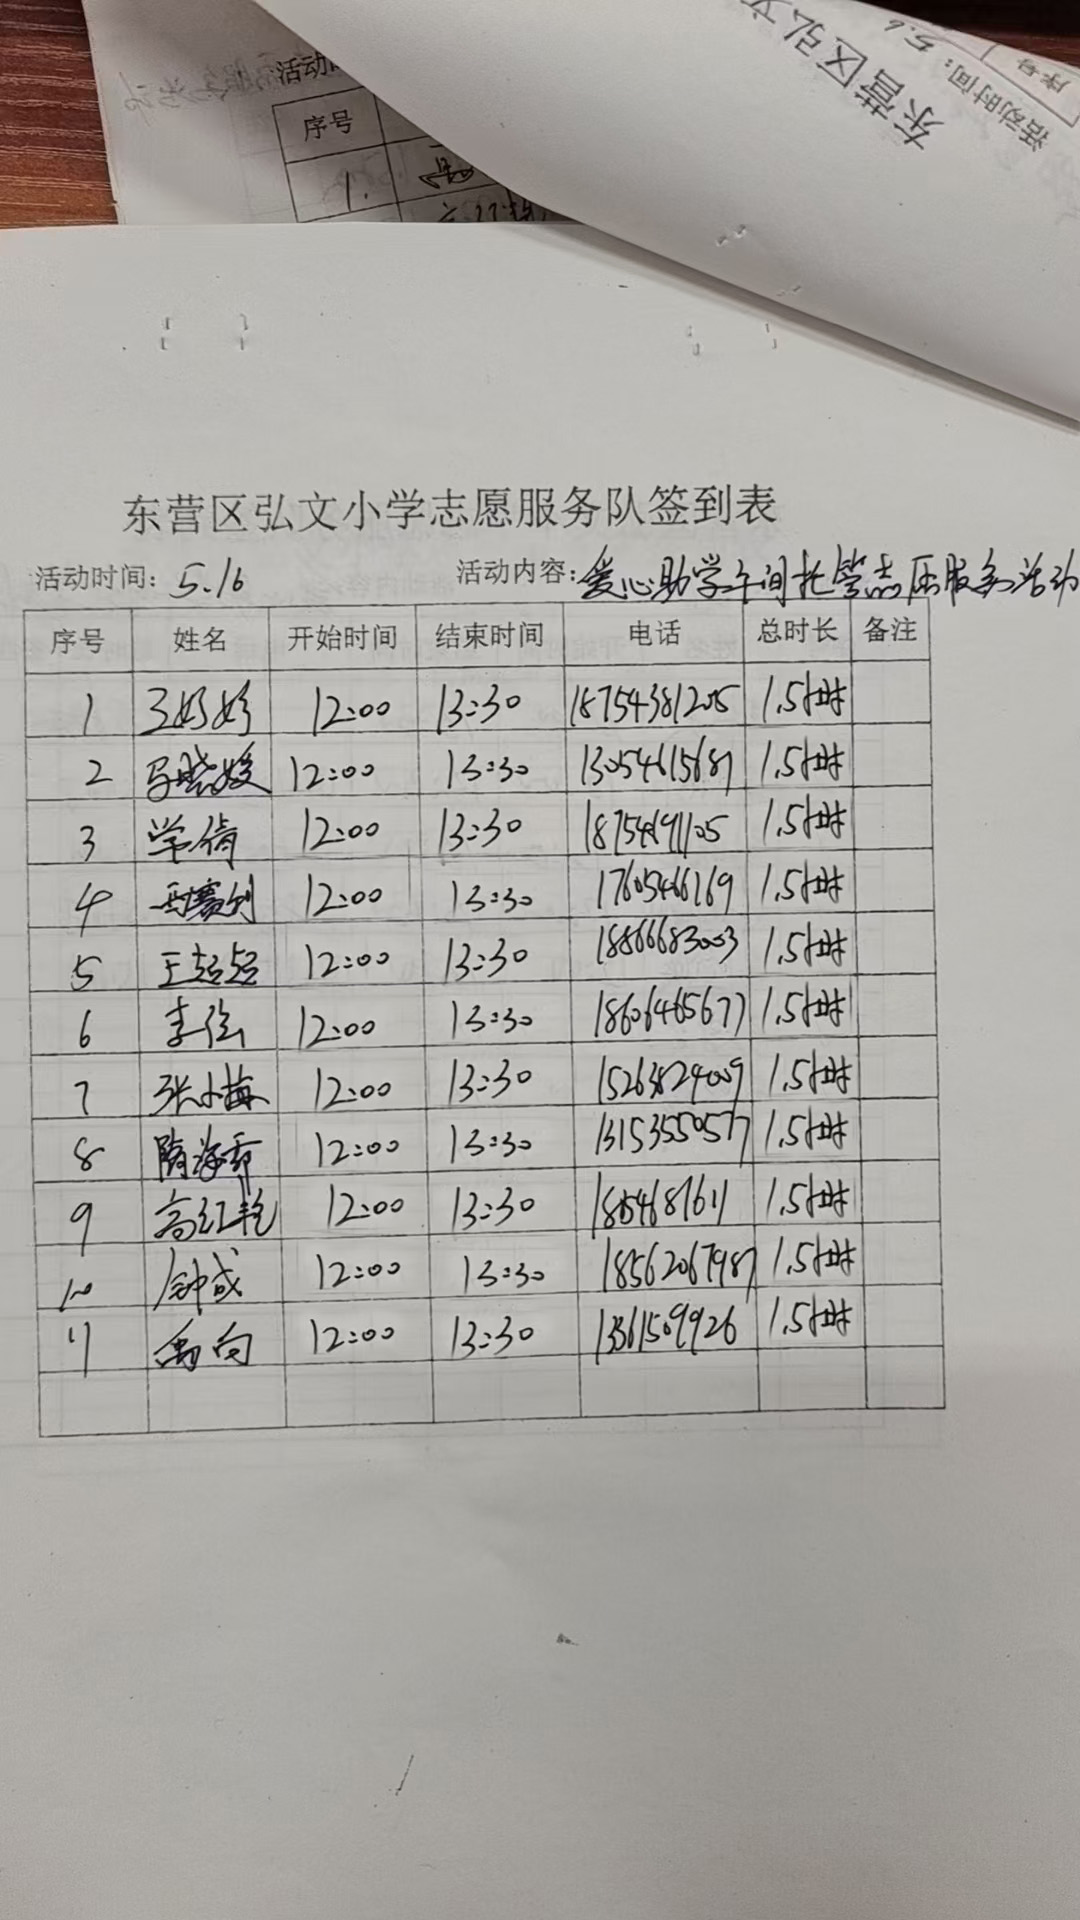 活动时
序号
1.
东营区弘文
活动时间：5.6
序号
东营区弘文小学志愿服务队签到表
活动时间：5.16 活动内容：爱心助学午间托管志愿服务活动
序号 姓名 开始时间 结束时间 电话 总时长 备注
1 王婷婷 12:00 13:30 18754381205 1.5小时
2 马晓媛 12:00 13:30 13054615687 1.5小时
3 常倩 12:00 13:30 1.5小时
4 12:00 13:30 17605466269 1.5小时
5 王超超 12:00 13:30 18866683003 1.5小时
6 李 12:00 13:30 18606465677 1.5小时
7 张小梅 12:00 13:30 15263829009 1.5小时
8 隋海霞 12:00 13:30 13153550577 1.5小时
9 高红艳 12:00 13:30 1.5小时
10 钟成 12:00 13:30 18562067987 1.5小时
11 12:00 13:30 13361509926 1.5小时